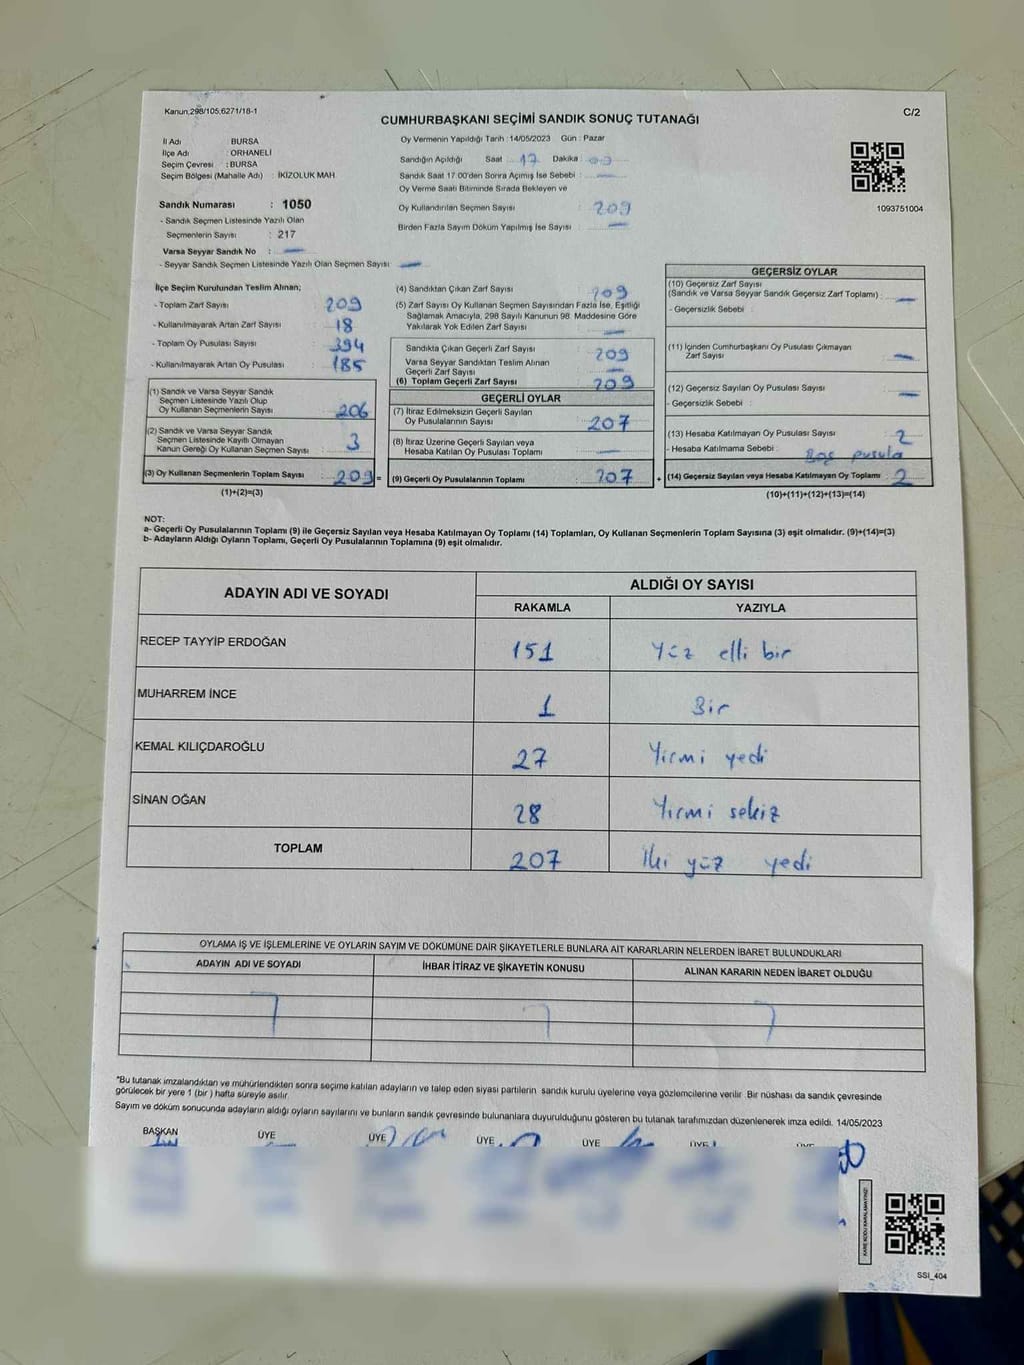 Kanun;298/105;6271/18-1
C/2
CUMHURBAŞKANI SEÇİMİ SANDIK SONUÇ TUTANAĞI
İl Adı BURSA
İlçe Adı : ORHANELİ
Seçim Çevresi : BURSA
Seçim Bölgesi (Mahalle Adı) : İKİZOLUK MAH.
Sandık Numarası : 1050
- Sandık Seçmen Listesinde Yazılı Olan
Seçmenlerin Sayısı : 217
Varsa Seyyar Sandık No : —
- Seyyar Sandık Seçmen Listesinde Yazılı Olan Seçmen Sayısı —
Oy Vermenin Yapıldığı Tarih : 14/05/2023 Gün : Pazar
Sandığın Açıldığı Saat : 17 Dakika :
Sandık Saat 17:00'den Sonra Açımış İse Sebebi : —
Oy Verme Saati Bitiminde Sırada Bekleyen ve
Oy Kullandırılan Seçmen Sayısı : 209
Birden Fazla Sayım Döküm Yapılmış İse Sayısı : —
1093751004
İlçe Seçim Kurulundan Teslim Alınan;
- Toplam Zarf Sayısı 209
- Kullanılmayarak Artan Zarf Sayısı 18
- Toplam Oy Pusulası Sayısı 394
- Kullanılmayarak Artan Oy Pusulası 185
(1) Sandık ve Varsa Seyyar Sandık
Seçmen Listesinde Yazılı Olup
Oy Kullanan Seçmenlerin Sayısı : 206
(2) Sandık ve Varsa Seyyar Sandık
Seçmen Listesinde Kayıtlı Olmayan
Kanun Gereği Oy Kullanan Seçmen Sayısı : 3
(3) Oy Kullanan Seçmenlerin Toplam Sayısı : 209 =
(1)+(2)=(3)
(4) Sandıktan Çıkan Zarf Sayısı : 209
(5) Zarf Sayısı Oy Kullanan Seçmen Sayısından Fazla İse, Eşitliği
Sağlamak Amacıyla, 298 Sayılı Kanunun 98. Maddesine Göre
Yakılarak Yok Edilen Zarf Sayısı : —
Sandıkta Çıkan Geçerli Zarf Sayısı : 209
Varsa Seyyar Sandıktan Teslim Alınan
Geçerli Zarf Sayısı : —
(6) Toplam Geçerli Zarf Sayısı : 209
GEÇERLİ OYLAR
(7) İtiraz Edilmeksizin Geçerli Sayılan
Oy Pusulalarının Sayısı : 207
(8) İtiraz Üzerine Geçerli Sayılan veya
Hesaba Katılan Oy Pusulası Toplamı : —
(9) Geçerli Oy Pusulalarının Toplamı : 207 +
GEÇERSİZ OYLAR
(10) Geçersiz Zarf Sayısı
(Sandık ve Varsa Seyyar Sandık Geçersiz Zarf Toplamı) : —
- Geçersizlik Sebebi :
(11) İçinden Cumhurbaşkanı Oy Pusulası Çıkmayan
Zarf Sayısı : —
(12) Geçersiz Sayılan Oy Pusulası Sayısı : —
- Geçersizlik Sebebi :
(13) Hesaba Katılmayan Oy Pusulası Sayısı : 2
- Hesaba Katılmama Sebebi : Boş pusula
(14) Geçersiz Sayılan veya Hesaba Katılmayan Oy Toplamı : 2
(10)+(11)+(12)+(13)=(14)
NOT:
a- Geçerli Oy Pusulalarının Toplamı (9) ile Geçersiz Sayılan veya Hesaba Katılmayan Oy Toplamı (14) Toplamları, Oy Kullanan Seçmenlerin Toplam Sayısına (3) eşit olmalıdır. (9)+(14)=(3)
b- Adayların Aldığı Oyların Toplamı, Geçerli Oy Pusulalarının Toplamına (9) eşit olmalıdır.
ADAYIN ADI VE SOYADI ALDIĞI OY SAYISI
RAKAMLA YAZIYLA
RECEP TAYYİP ERDOĞAN 151 Yüz elli bir
MUHARREM İNCE 1 Bir
KEMAL KILIÇDAROĞLU 27 Yirmi yedi
SİNAN OĞAN 28 Yirmi sekiz
TOPLAM 207 İki yüz yedi
OYLAMA İŞ VE İŞLEMLERİNE VE OYLARIN SAYIM VE DÖKÜMÜNE DAİR ŞİKAYETLERLE BUNLARA AİT KARARLARIN NELERDEN İBARET BULUNDUKLARI
ADAYIN ADI VE SOYADI İHBAR İTİRAZ VE ŞİKAYETİN KONUSU ALINAN KARARIN NEDEN İBARET OLDUĞU
*Bu tutanak imzalandıktan ve mühürlendikten sonra seçime katılan adayların ve talep eden siyasi partilerin sandık kurulu üyelerine veya gözlemcilerine verilir. Bir nüshası da sandık çevresinde
görülecek bir yere 1 (bir) hafta süreyle asılır.
Sayım ve döküm sonucunda adayların aldığı oyların sayılarını ve bunların sandık çevresinde bulunanlara duyurulduğunu gösteren bu tutanak tarafımızdan düzenlenerek imza edildi. 14/05/2023
BAŞKAN ÜYE ÜYE ÜYE ÜYE ÜYE ÜYE
KARE KODU KARALAMAYINIZ!
SSİ_404